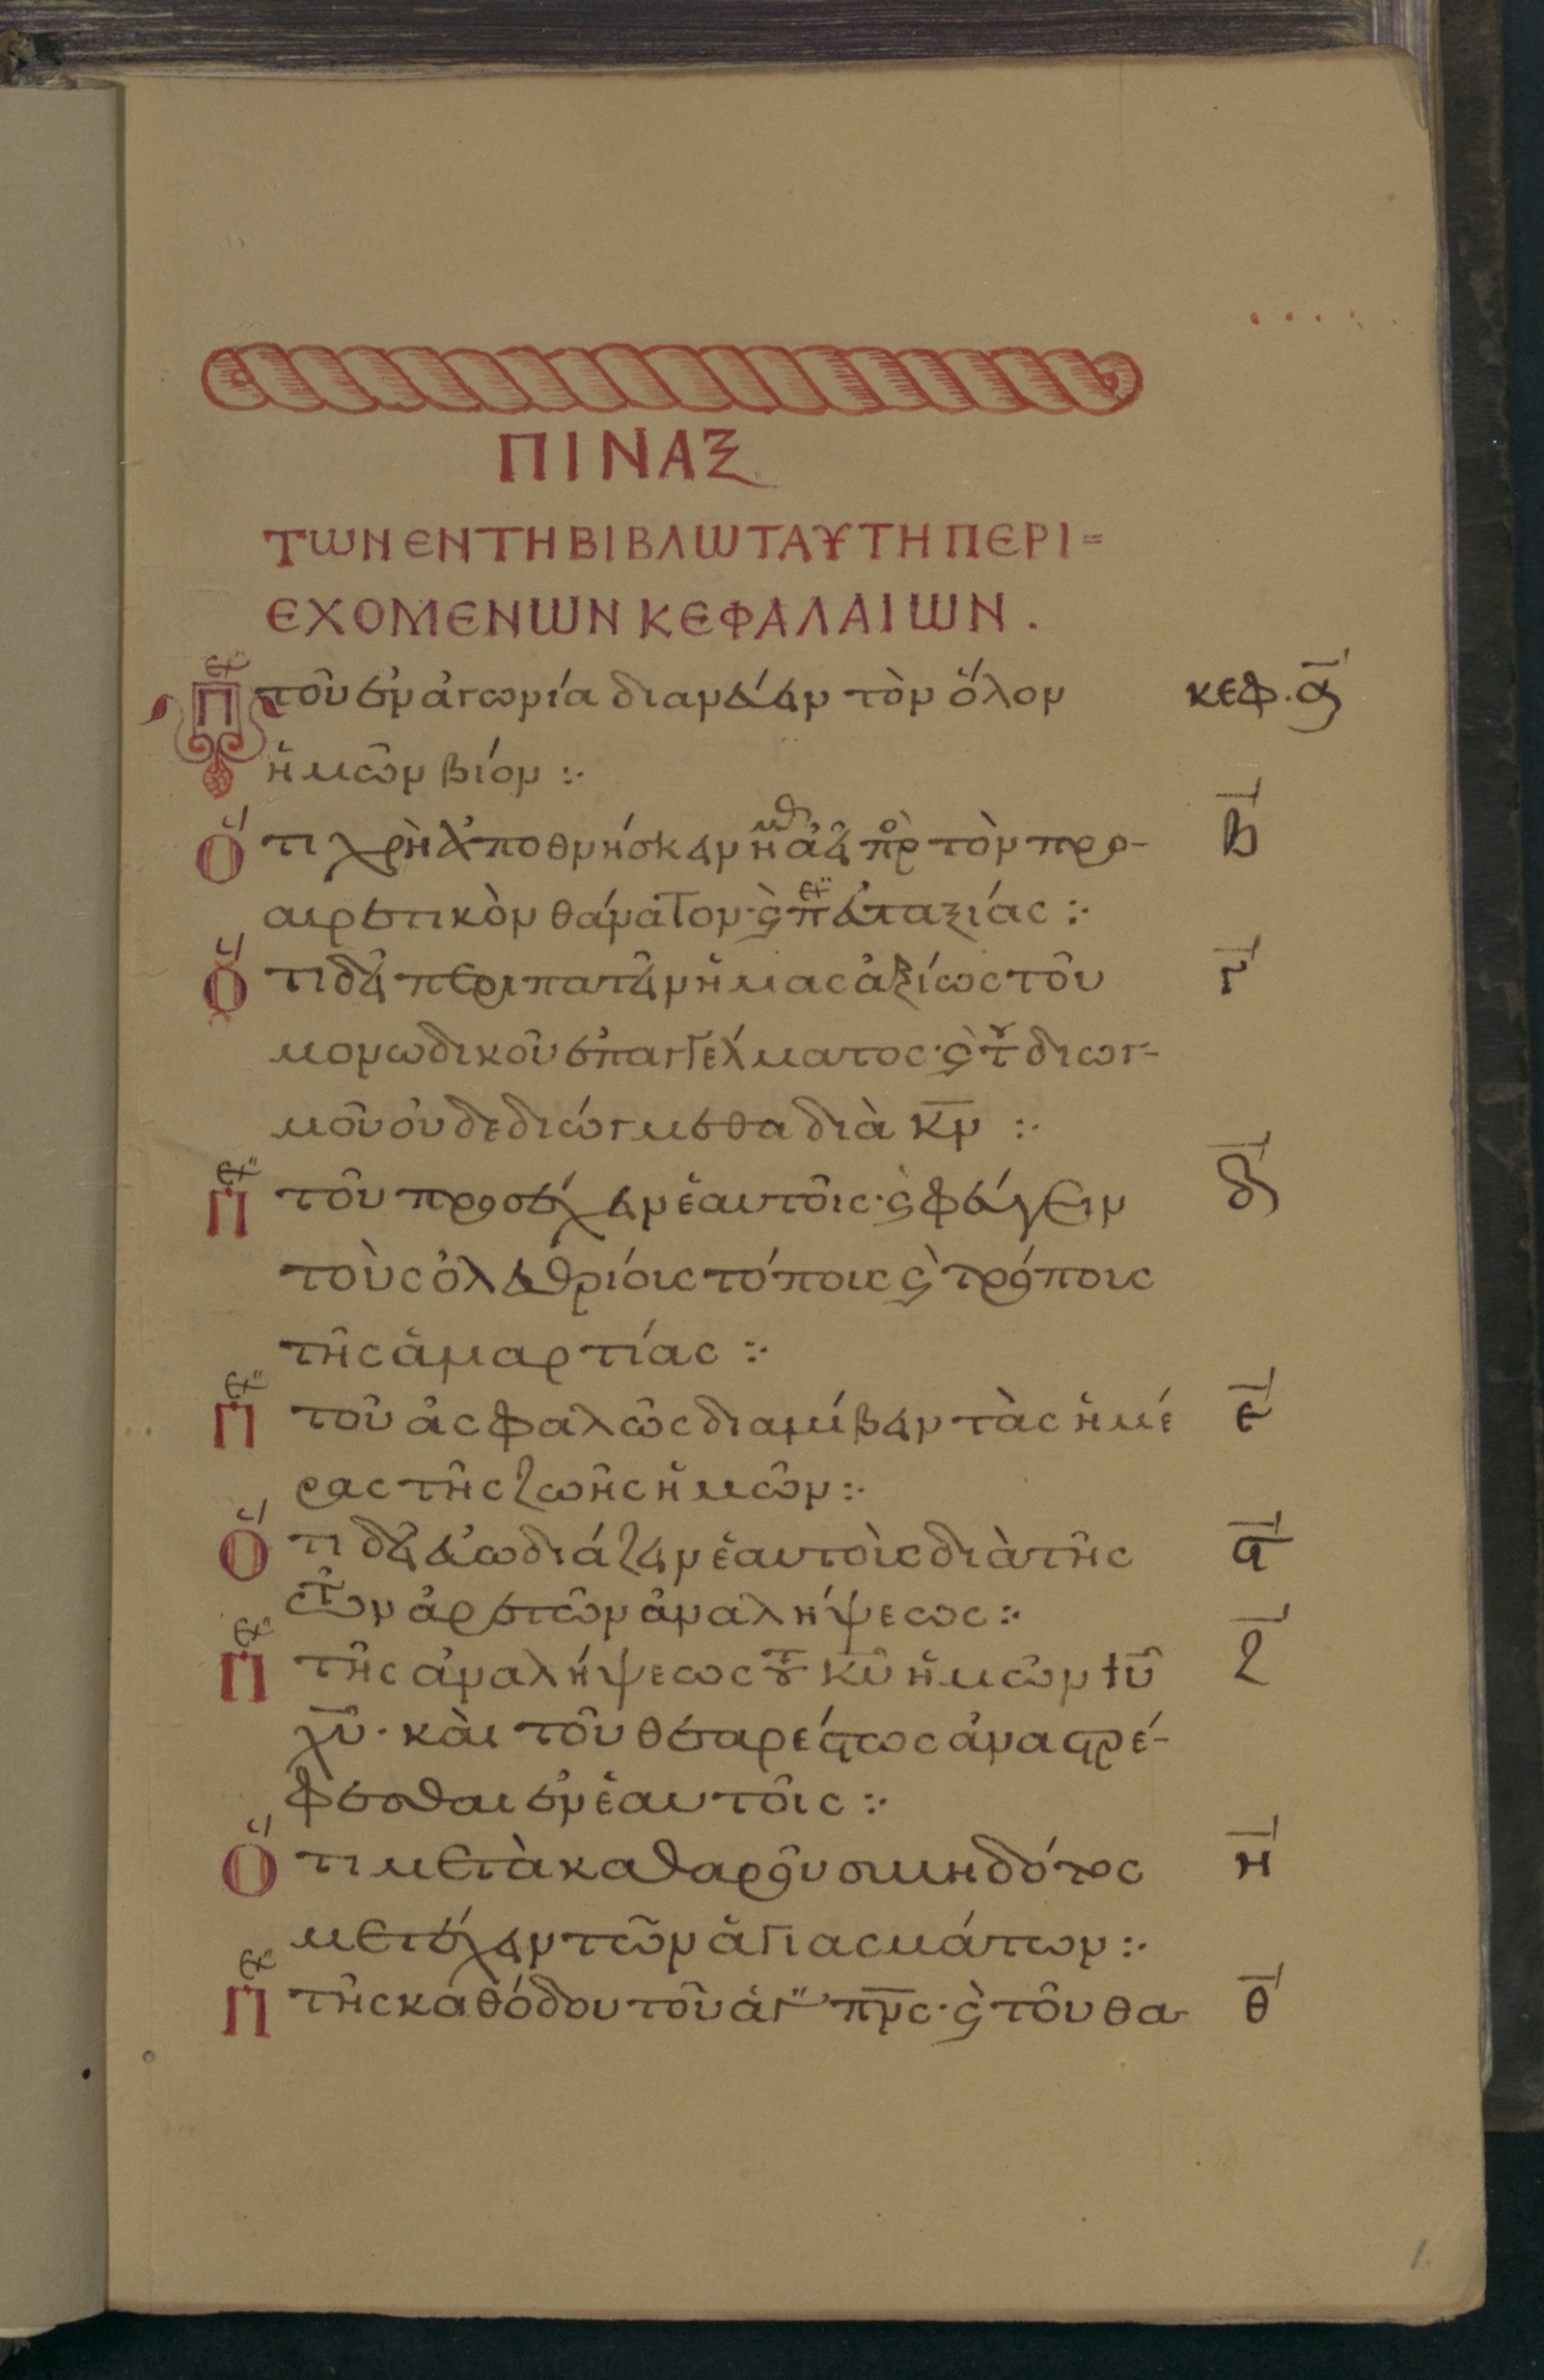 ΠΙΝΑΞ
ΤΩΝ ΕΝ ΤΗ ΒΙΒΛΩ ΤΑΥΤΗ ΠΕΡΙ=
ΕΧΟΜΕΝΩΝ ΚΕΦΑΛΑΙΩΝ.
Π τοῦ ἐν ἀγωνία διανύειν τὸν ὅλον κεφ. α
ἡμῶν βίον :·
Ὅτι χρὴ ἀποθνήσκειν ἡμᾶς ἀεὶ πρὸς τὸν προ- β
αιρετικὸν θάνατον· καὶ π εὐταξίας :·
Ὅτι δεῖ περιπατεῖν ἡμας ἀξίως τοῦ γ
μοναδικοῦ ἐπαγγέλματος· καὶ τοῦ διωγ-
μοῦ οὗ δεδιώγμεθα διὰ κν :·
Π τοῦ προσέχειν ἑαυτοῖς· καὶ φεύγειν δ
τοὺς ὀλεθρίοις τόποις καὶ τρόποις
τῆς ἁμαρτίας :·
Π τοῦ ἀσφαλῶς διαμείβειν τὰς ἡμέ ε
ρας τῆς ζωῆς ἡμῶν :·
Ὅτι δεῖ εὐωδιάζειν ἑαυτοὶς διὰ τῆς ϛ
τῶν ἀρετῶν ἀναλήψεως :·
Π τῆς ἀναλήψεως τοῦ κυ ἡμῶν ιυ ζ
χυ· καὶ τοῦ θεαρέστως ἀναστρέ-
φεσθαι ἐν ἑαυτοῖς :·
Ὅτι μετὰ καθαροῦ συνειδότος η
μετέχειν τῶν ἁγιασμάτων :·
Π τῆς καθόδου τοῦ ἁγ πνς· καὶ τοῦ θα θ